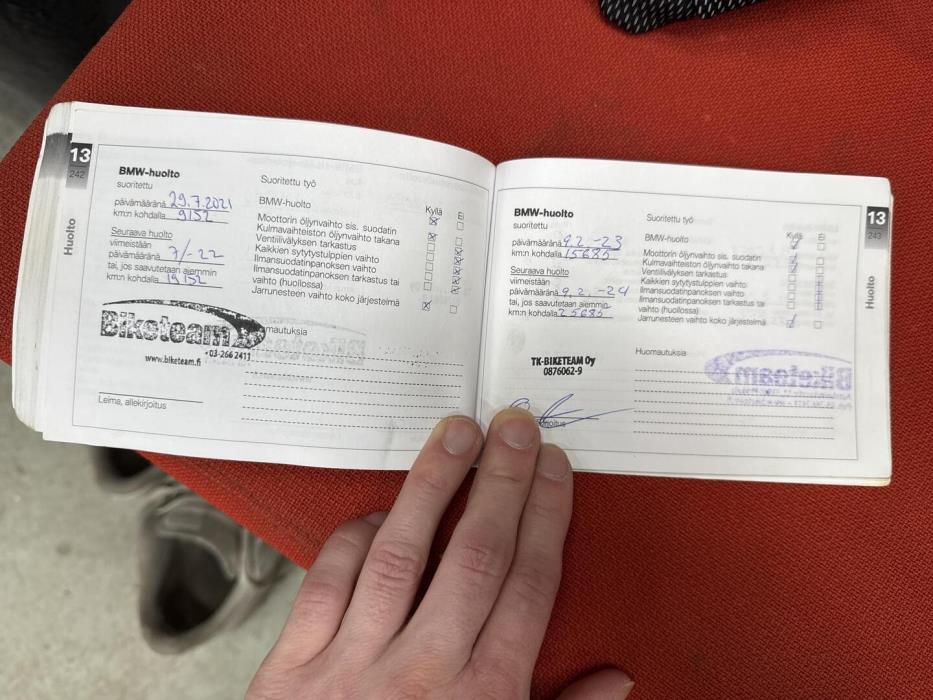 13
242
Huolto
BMW-huolto
suoritettu
päivämääränä 29.7.2021
km:n kohdalla 9152
Seuraava huolto
viimeistään
päivämääränä 7/-22
tai, jos saavutetaan aiemmin
km:n kohdalla 19152
Biketeam
03-266 2411
www.biketeam.fi
Leima, allekirjoitus
Suoritettu työ
BMW-huolto
Kyllä Ei
Moottorin öljynvaihto sis. suodatin
Kulmavaihteiston öljynvaihto takana
Ventiilivälyksen tarkastus
Kaikkien sytytystulppien vaihto
Ilmansuodatinpanoksen vaihto
Ilmansuodatinpanoksen tarkastus tai
vaihto (huollossa)
Jarrunesteen vaihto koko järjestelmä
omautuksia
BMW-huolto
suoritettu
päivämääränä 9.2.-23
km:n kohdalla 15685
Seuraava huolto
viimeistään
päivämääränä 9.2.-24
tai, jos saavutetaan aiemmin
km:n kohdalla 25685
TK-BIKETEAM Oy
0876062-9
Suoritettu työ
BMW-huolto
Kyllä Ei
Moottorin öljynvaihto sis. suodatin
Kulmavaihteiston öljynvaihto takana
Ventiilivälyksen tarkastus
Kaikkien sytytystulppien vaihto
Ilmansuodatinpanoksen vaihto
Ilmansuodatinpanoksen tarkastus tai
vaihto (huollossa)
Jarrunesteen vaihto koko järjestelmä
Huomautuksia
Biketeam
13
243
Huolto